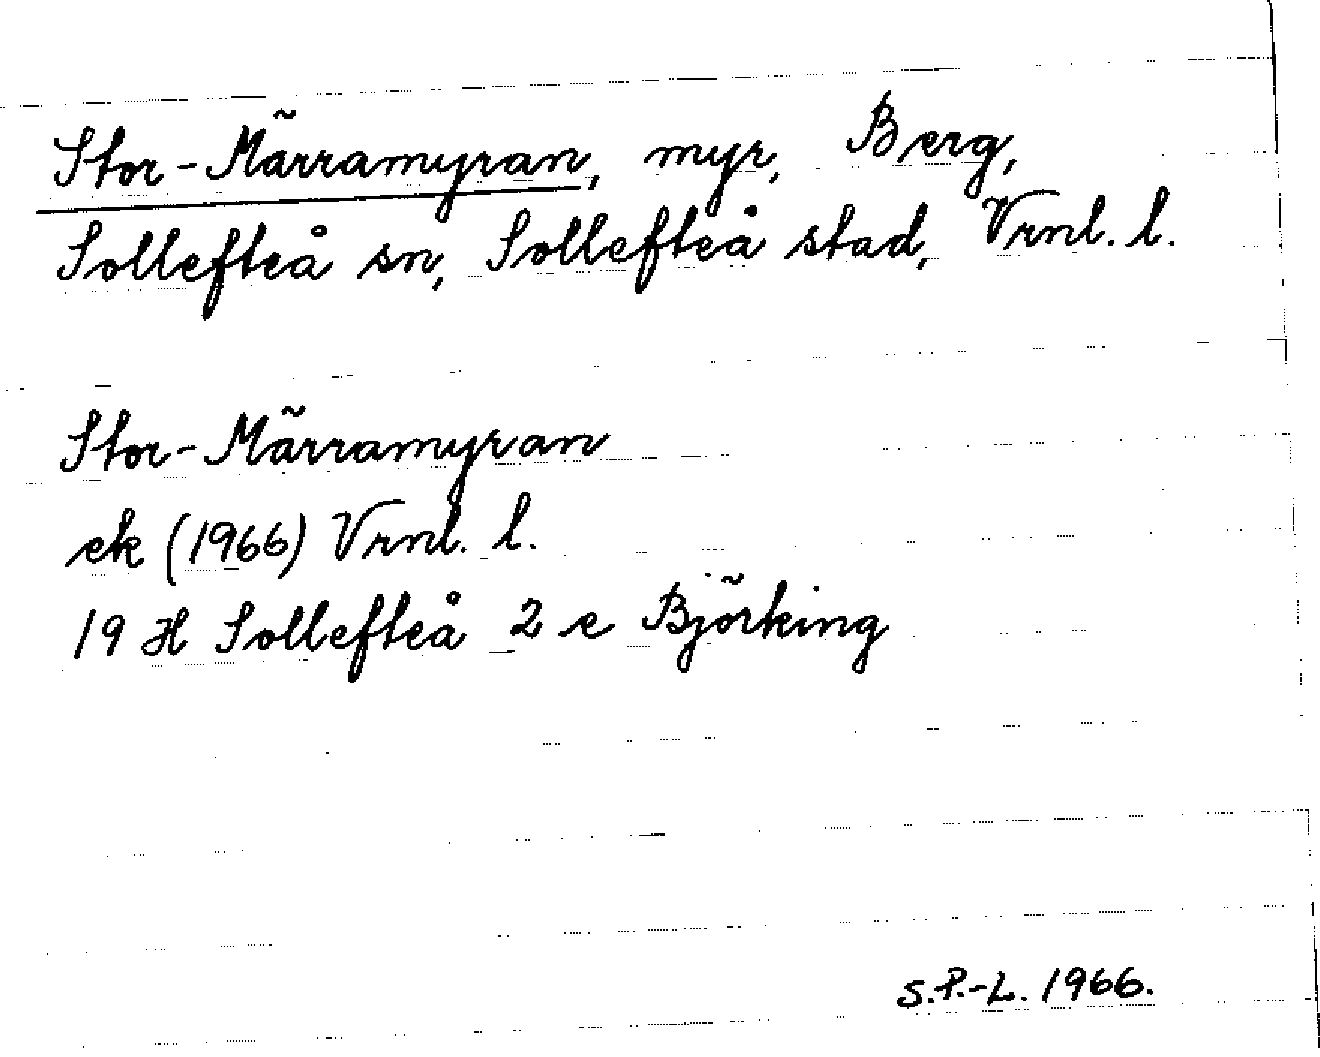 Stor-Märramyran, myr, Berg,
Sollefteå sn, Sollefteå stad, Vrnl. l.
Stor-Märramyran
ek (1966) Vrnl. l.
19 H Sollefteå 2 e Björking
S.P.-L. 1966.